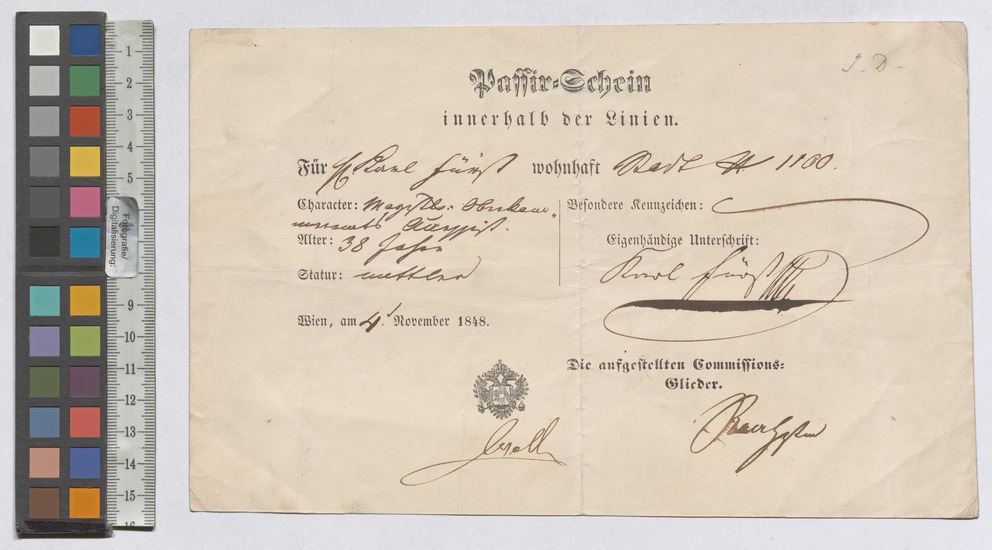 J. D.
Passir-Schein
innerhalb der Linien.
Für Karl Fürst wohnhaft Stadt # 1100.
Character: Magistr. Oberkam-
meramts
Alter: 38 Jahre
Statur: mittler
Besondere Kennzeichen:
Eigenhändige Unterschrift:
Karl Fürst
Wien, am 4. November 1848.
Die aufgestellten Commissions-
Glieder.
1
2
3
4
5
9
10
11
12
13
14
15
16
Fotografie/
Digitalisierung: